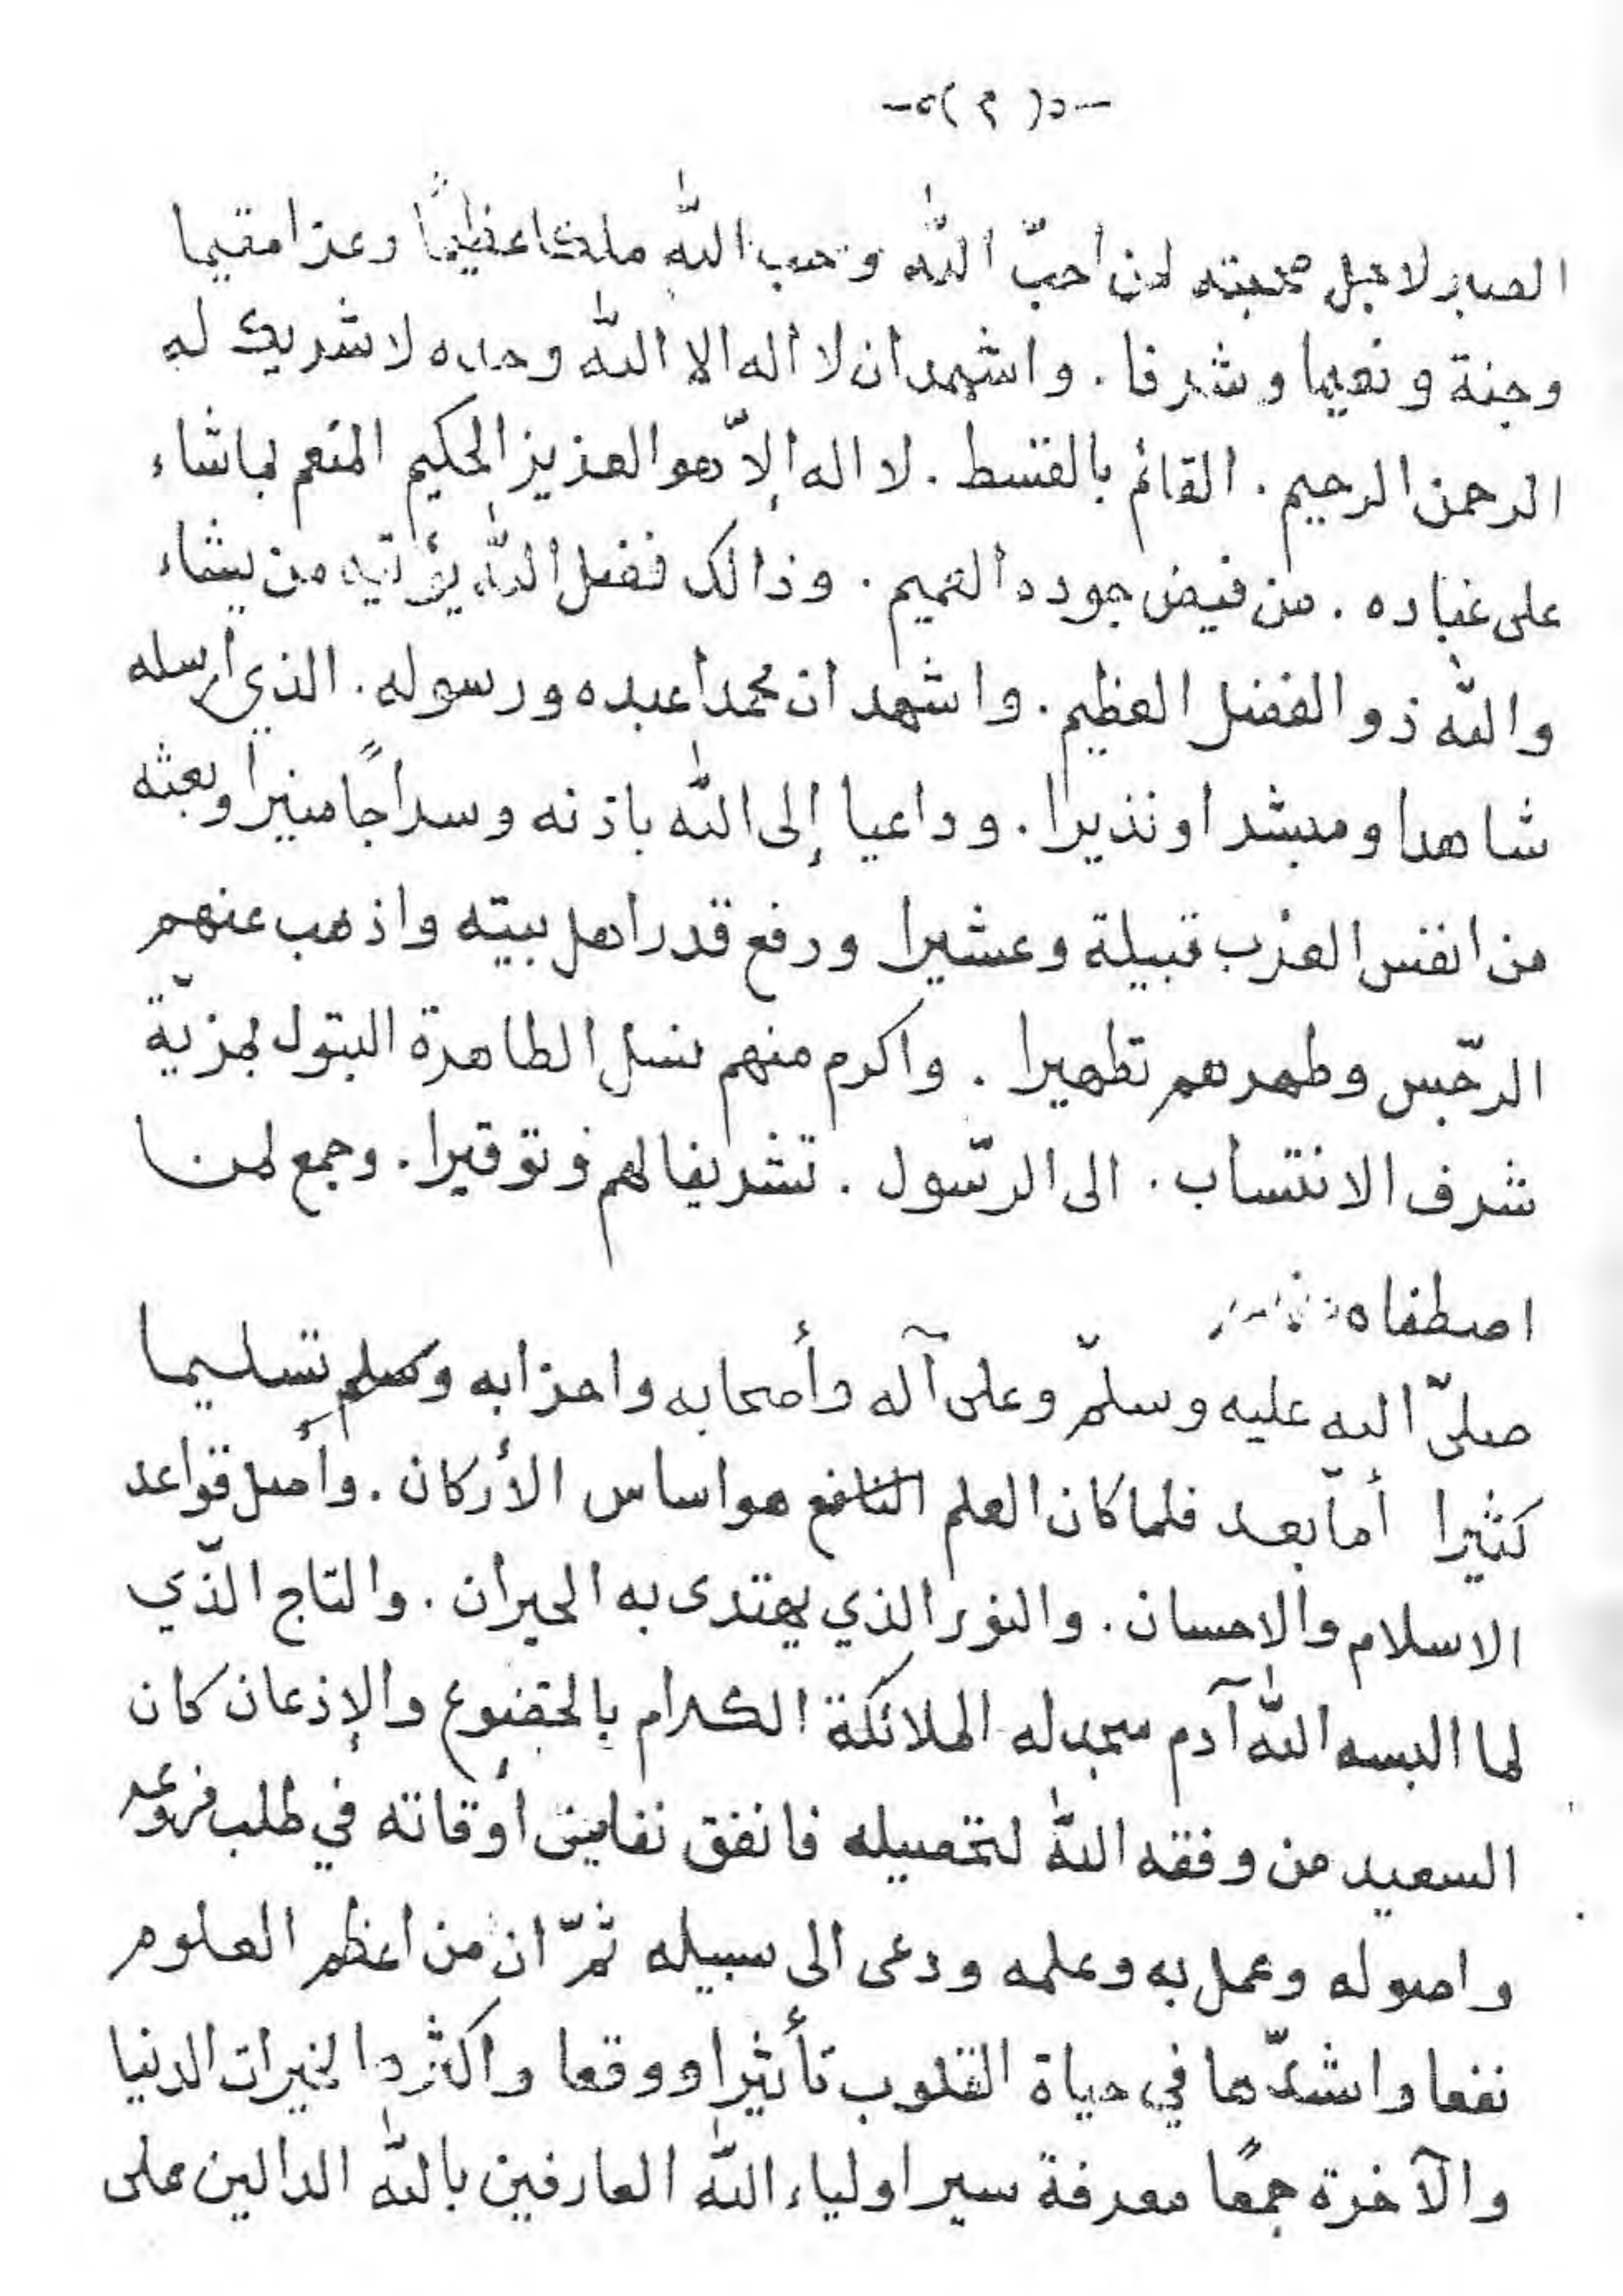 -٥( ٣ )٥-
الصابر لاجل محبته لمن احبّ اللّٰه وحب اللّٰه ملكا عظيمًا وعزا مقيما
وجنة ونعيما وشرفا . واشهد ان لا اله الا اللّٰه وحده لا شريك له
الرحمن الرحيم . القائم بالقسط . لا اله إلاّ هو العزيز الحكيم المنعم بما شاء
على عباده . من فيض جوده العميم . وذالك فضل اللّٰه يؤتيه من يشاء
واللّٰه ذو الفضل العظيم . واشهد ان محمدا عبده ورسوله . الذي ارسله
شاهدا ومبشرا ونذيرا . وداعيا إلى اللّٰه باذنه وسراجًا منيرا وبعثه
من انفس العرب قبيلة وعشيرا ورفع قدر اهل بيته واذهب عنهم
الرّجس وطهرهم تطهيرا . واكرم منهم نسل الطاهرة البتول بمزيّة
شرف الانتساب . الى الرّسول . تشريفا لهم وتوقيرا . وجمع لمن
اصطفاه
صلىّ الله عليه وسلمّ وعلى آله وأصحابه واحزابه وسلم تسليما
كثيرا أمّا بعد فلما كان العلم النافع هو اساس الأركان . وأصل قواعد
الاسلام والاحسان . والنور الذي يهتدى به الحيران . والتاج الذّي
لما البسه اللّٰه آدم سجد له الملائكة الكرام بالخضوع والإذعان كان
السعيد من وفقه اللّٰه لتحصيله فانفق نفايس أوقاته في طلب فروعه
واصوله وعمل به وعلمه ودعى الى سبيله ثمّ ان من اعظم العلوم
نفعا واشدّها في حياة القلوب تأثيرا ووقعا واكثرها لخيرات الدنيا
والآخرة جمعًا معرفة سير اولياء اللّٰه العارفين باللّٰه الدالين على